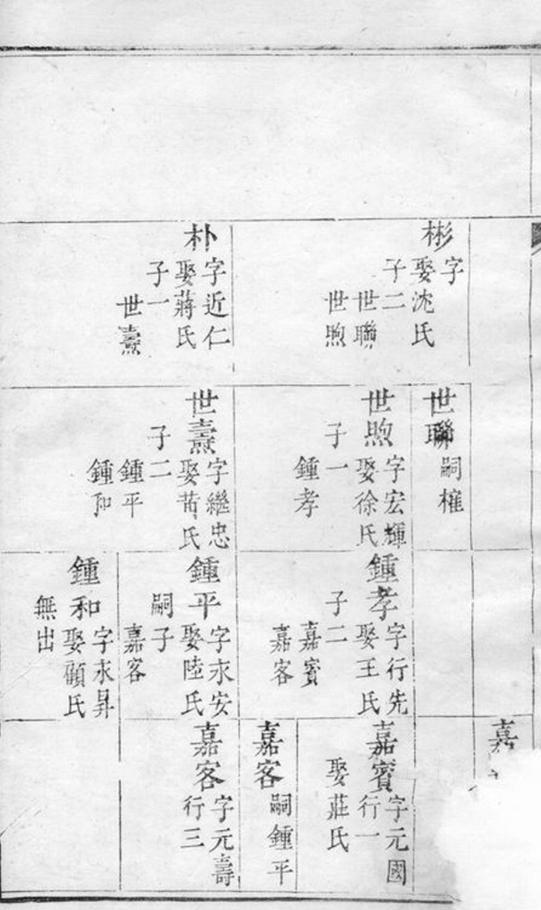 彬
字
娶沈氏
子二
世聯
世煦
朴
字近仁
娶蔣氏
子一
世燾
世聯
嗣權
世煦
字宏輝
娶徐氏
子一
鍾孝
世燾
字繼忠
娶苗氏
子二
鍾平
鍾和
鍾孝
字行先
娶王氏
子二
嘉賓
嘉客
鍾平
字永安
娶陸氏
嗣子
嘉客
鍾和
字永昇
娶顧氏
無出
嘉
嘉賓
字元國
行一
娶莊氏
嘉客
嗣鍾平
嘉客
字元壽
行三